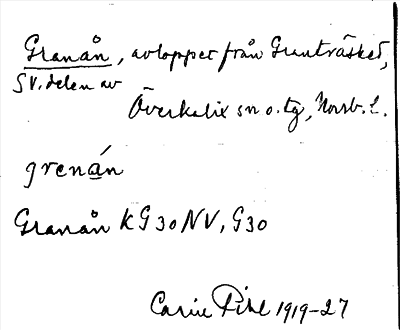 Granån, avloppet från Granträsket,
SV. delen av
Överkalix sn o. tg, Norrb. l.
grenán
Granån KG30NV, G30
Carin Pihl 1919-27